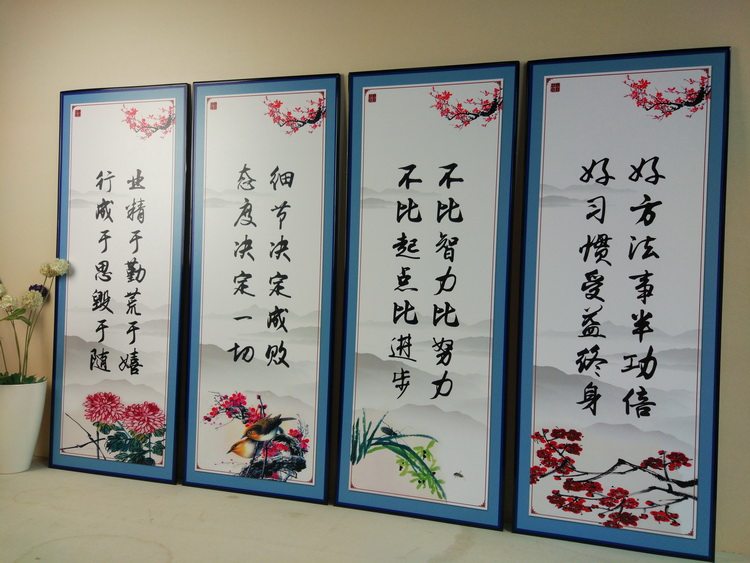 业精于勤荒于嬉
行成于思毁于随
细节决定成败
态度决定一切
不比智力比努力
不比起点比进步
好方法事半功倍
好习惯受益终身